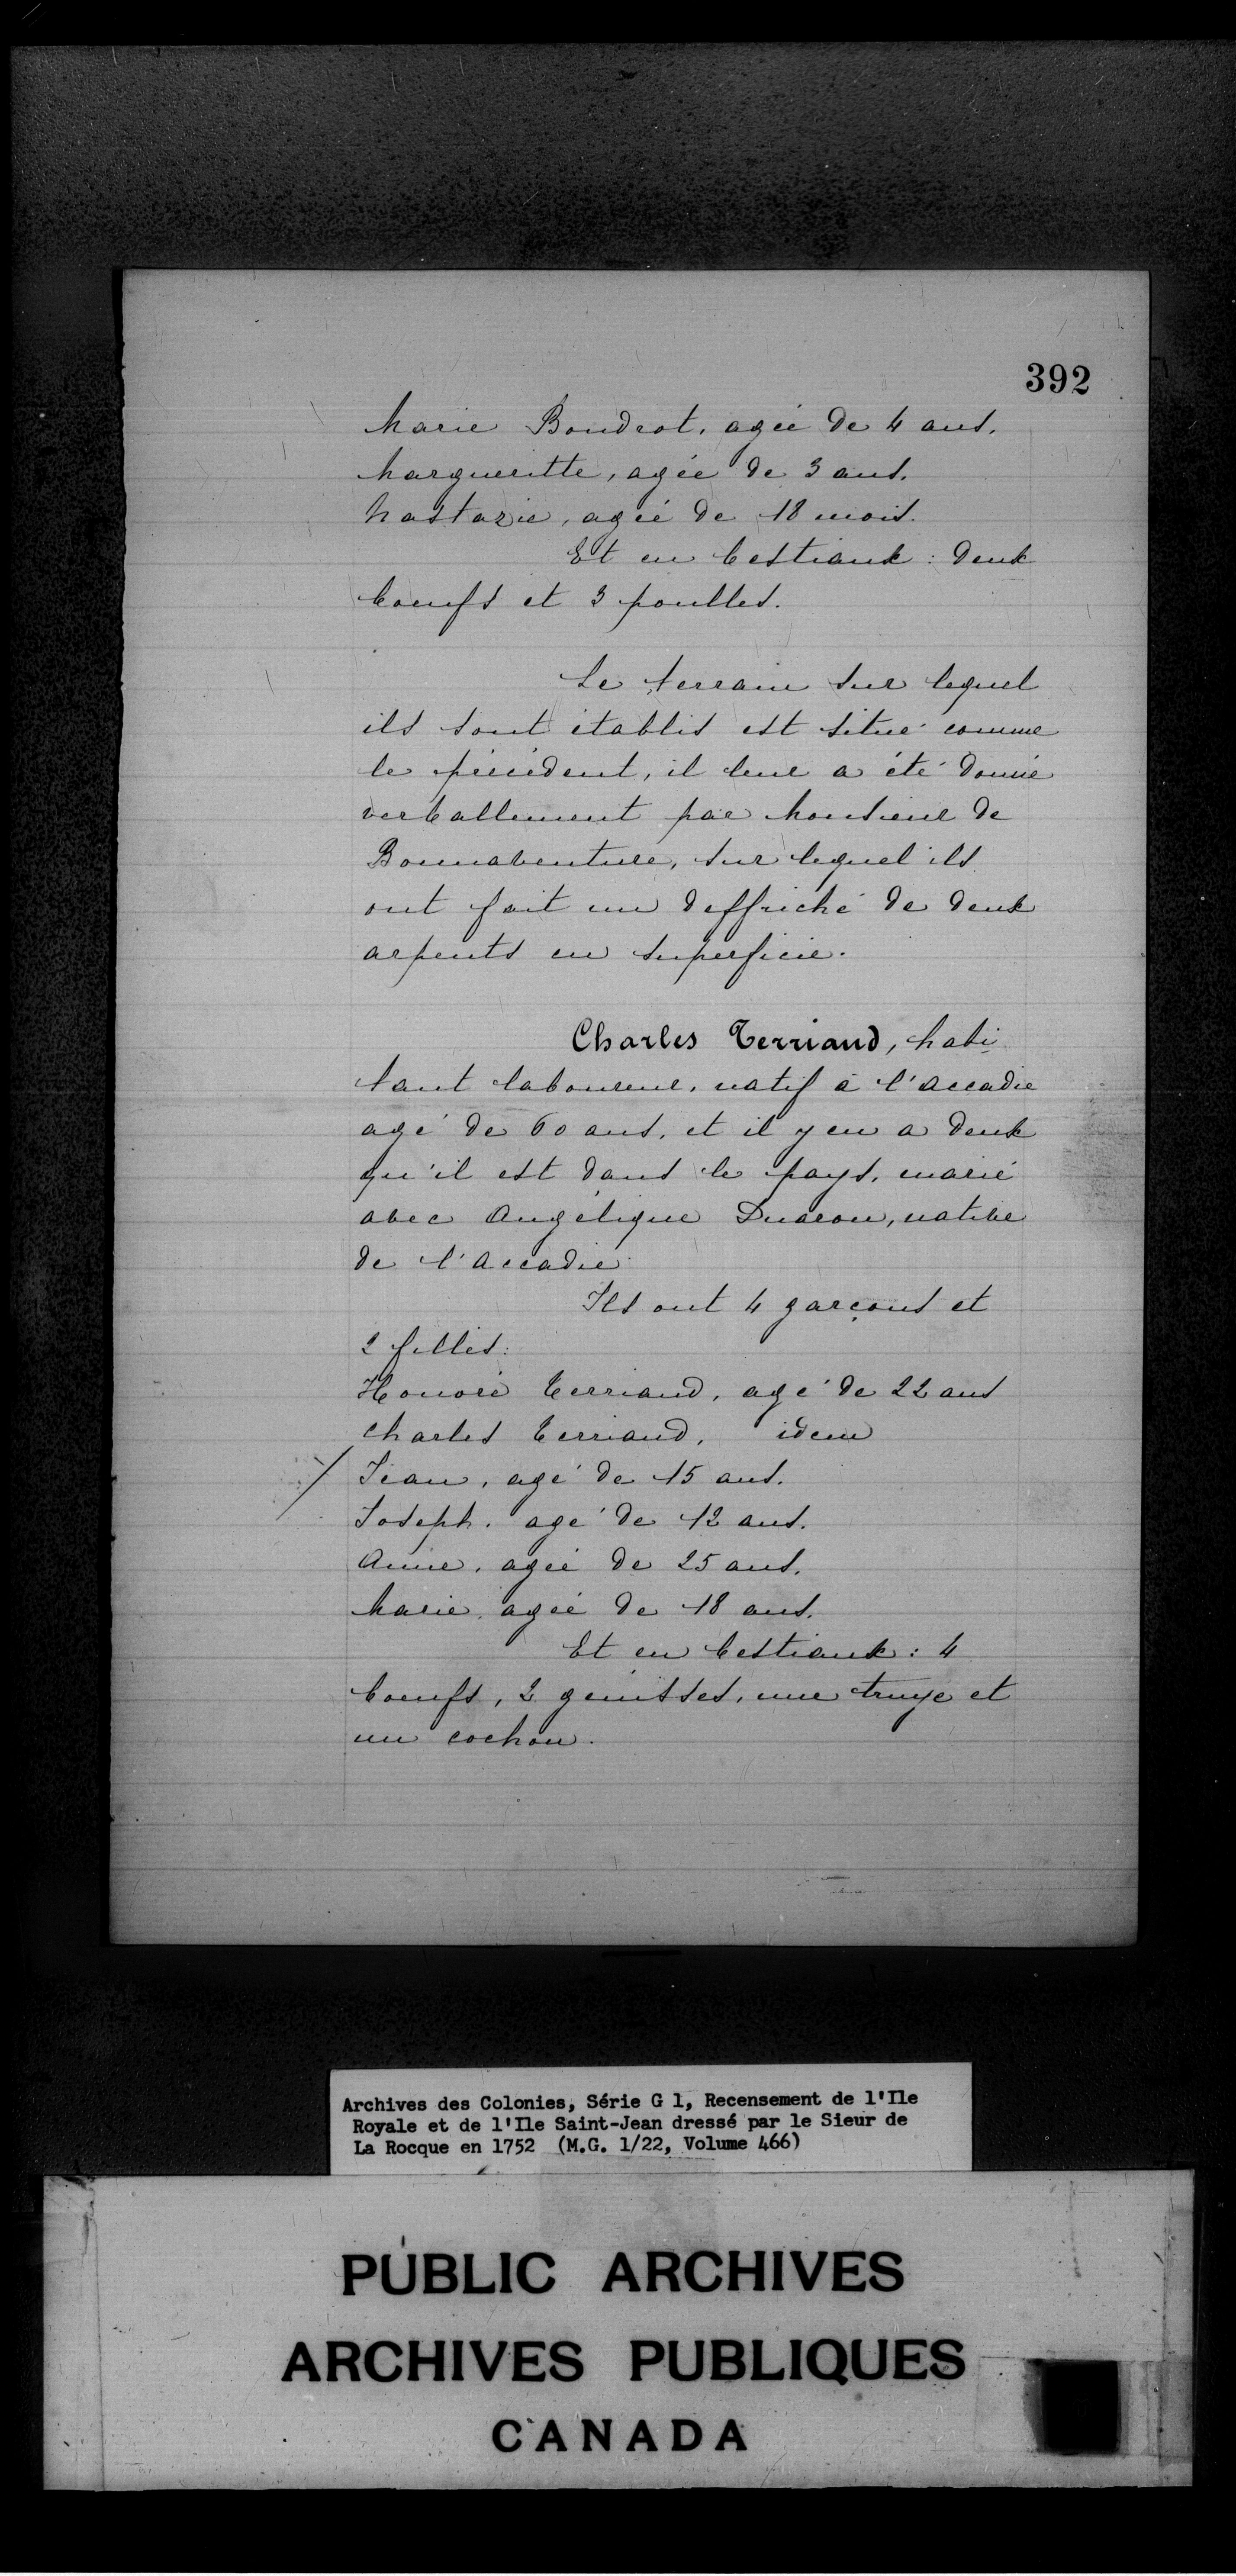 392
Marie Boudrot, agée de 4 ans.
Margueritte, agée de 3 ans.
Nastazie, agée de 18 mois.
Et en bestiaux : deux
boeufs et 3 poulles.
Le terrain sur lequel
ils sont établis est situé comme
le précédent, il leur a été donné
verballement par Monsieur de
Bonnaventure, sur lequel ils
ont fait un deffriché de deux
arpents en superficie.
Charles Terriaud, habi
tant laboureur, natif à l'Accadie
agé de 60 ans, et il y en a deux
qu'il est dans le pays, marié
avec Angélique Duaron, native
de l'Accadie.
Ils ont 4 garçons et
2 filles:
Honoré Terriaud, agé de 22 ans
Charles Terriaud, idem
Jean, agé de 15 ans.
Joseph, agé de 12 ans.
Anne, agée de 25 ans.
Marie, agée de 18 ans.
Et en bestiaux : 4
boeufs, 2 genisses, une truye et
un cochon.
Archives des Colonies, Série G 1, Recensement de l'Ile
Royale et de l'Ile Saint-Jean dressé par le Sieur de
La Rocque en 1752 (M.G. 1/22, Volume 466)
PUBLIC ARCHIVES
ARCHIVES PUBLIQUES
CANADA